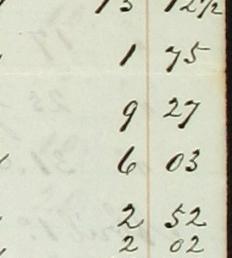 13 12½
1 75
9 27
6 03
2 52
2 02